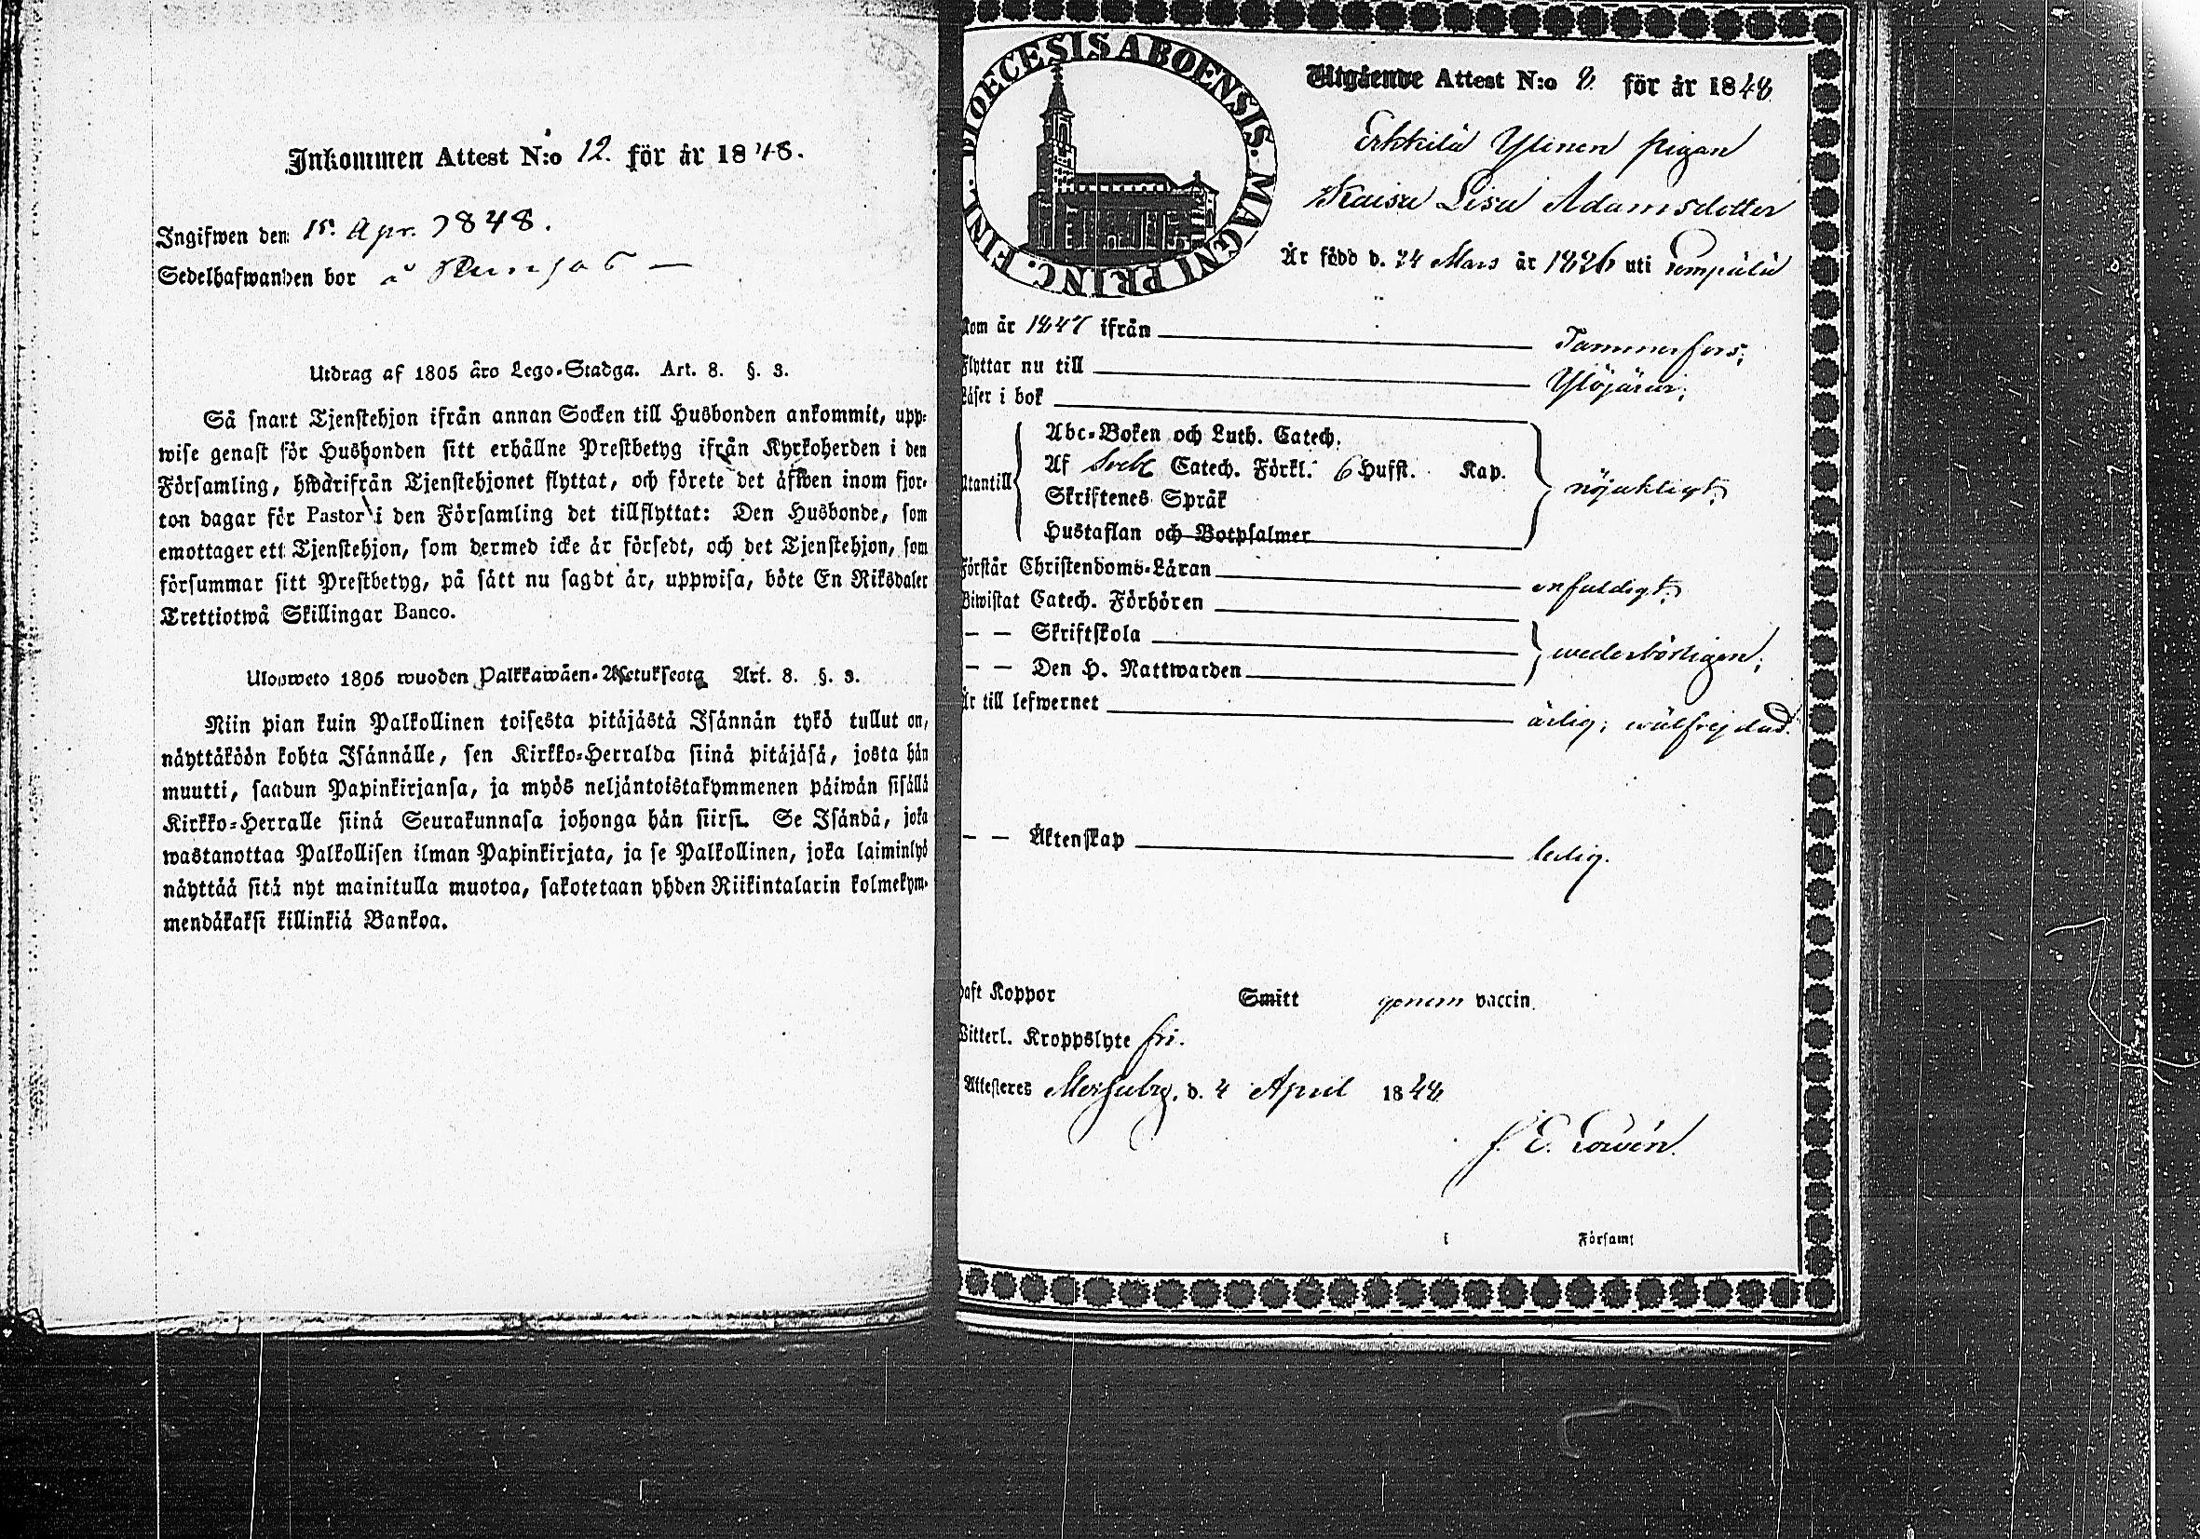 Inkommen Attest N:o 12. för år 1848.
Ingifwen den 15. Apr. 1848.
Sedelhafwanden bor å
Utdrag af 1805 års Lego-Stadga. Art. 8. §. 3.
Så snart Tjenstehjon ifrån annan Socken till Husbonden ankommit, upp-
wise genast för Husbonden sitt erhållne Prestbetyg ifrån Kyrkoherden i den
Församling, hwarifrån Tjenstehjonet flyttat, och förete det äfwen inom fjor-
ton dagar för Pastor i den Församling det tillflyttat: Den Husbonde, som
emottager ett Tjenstehjon, som dermed icke är försedt, och det Tjenstehjon, som
försummar sitt Prestbetyg, på sätt nu sagdt är, uppwisa, böte En Riksdaler
Trettiotwå Skillingar Banco.
Ulosweto 1805 wuoden Palkkawäen-Asetuksesta Art. 8. §. 3.
Niin pian kuin Palkollinen toisesta pitäjästä Isännän tykö tullut on,
näyttäköön kohta Isännälle, sen Kirkko-Herralda siinä pitäjäsä, josta hän
muutti, saadun Papinkirjansa, ja myös neljäntoistakymmenen päiwän sisällä
Kirkko-Herralle siinä Seurakunnasa johonga hän siirsi. Se Isändä, joka
wastanottaa Palkollisen ilman Papinkirjata, ja se Palkollinen, joka laiminlyö
näyttää sitä nyt mainitulla muotoa, sakotetaan yhden Riikintalarin kolmekym-
mendäkaksi killinkiä Bankoa.
DIOECESIS ABOENSIS. MAGNI PRINC. FINL.
Utgående Attest N:o 8. för år 1848
Erkkilä Ylinen pigan
Kaisa Lisa Adamsdotter
Är född d. 24 Mars år 1826 uti Lempälä
Kom år 1847 ifrån Tammerfors;
Flyttar nu till Ylöjärvi;
Läser i bok
Abc-Boken och Luth. Catech.
Utantill Af Sveb. Catech. Förkl. 6 Hufst. Kap. nöjaktligt;
Skriftenes Språk
Hustaflan och Botpsalmer
Förstår Christendoms-Läran enfaldigt;
Biwistat Catech. Förhören
— — Skriftskola wederbörligen;
— — Den H. Nattwarden
Är till lefwernet ärlig; wälfrejdad.
— — Äktenskap ledig.
Haft Koppor Smitt genom vaccin.
Witterl. Kroppslyte fri.
Attesteres Messuby, d. 4 April 1848
f. E.
i Församl